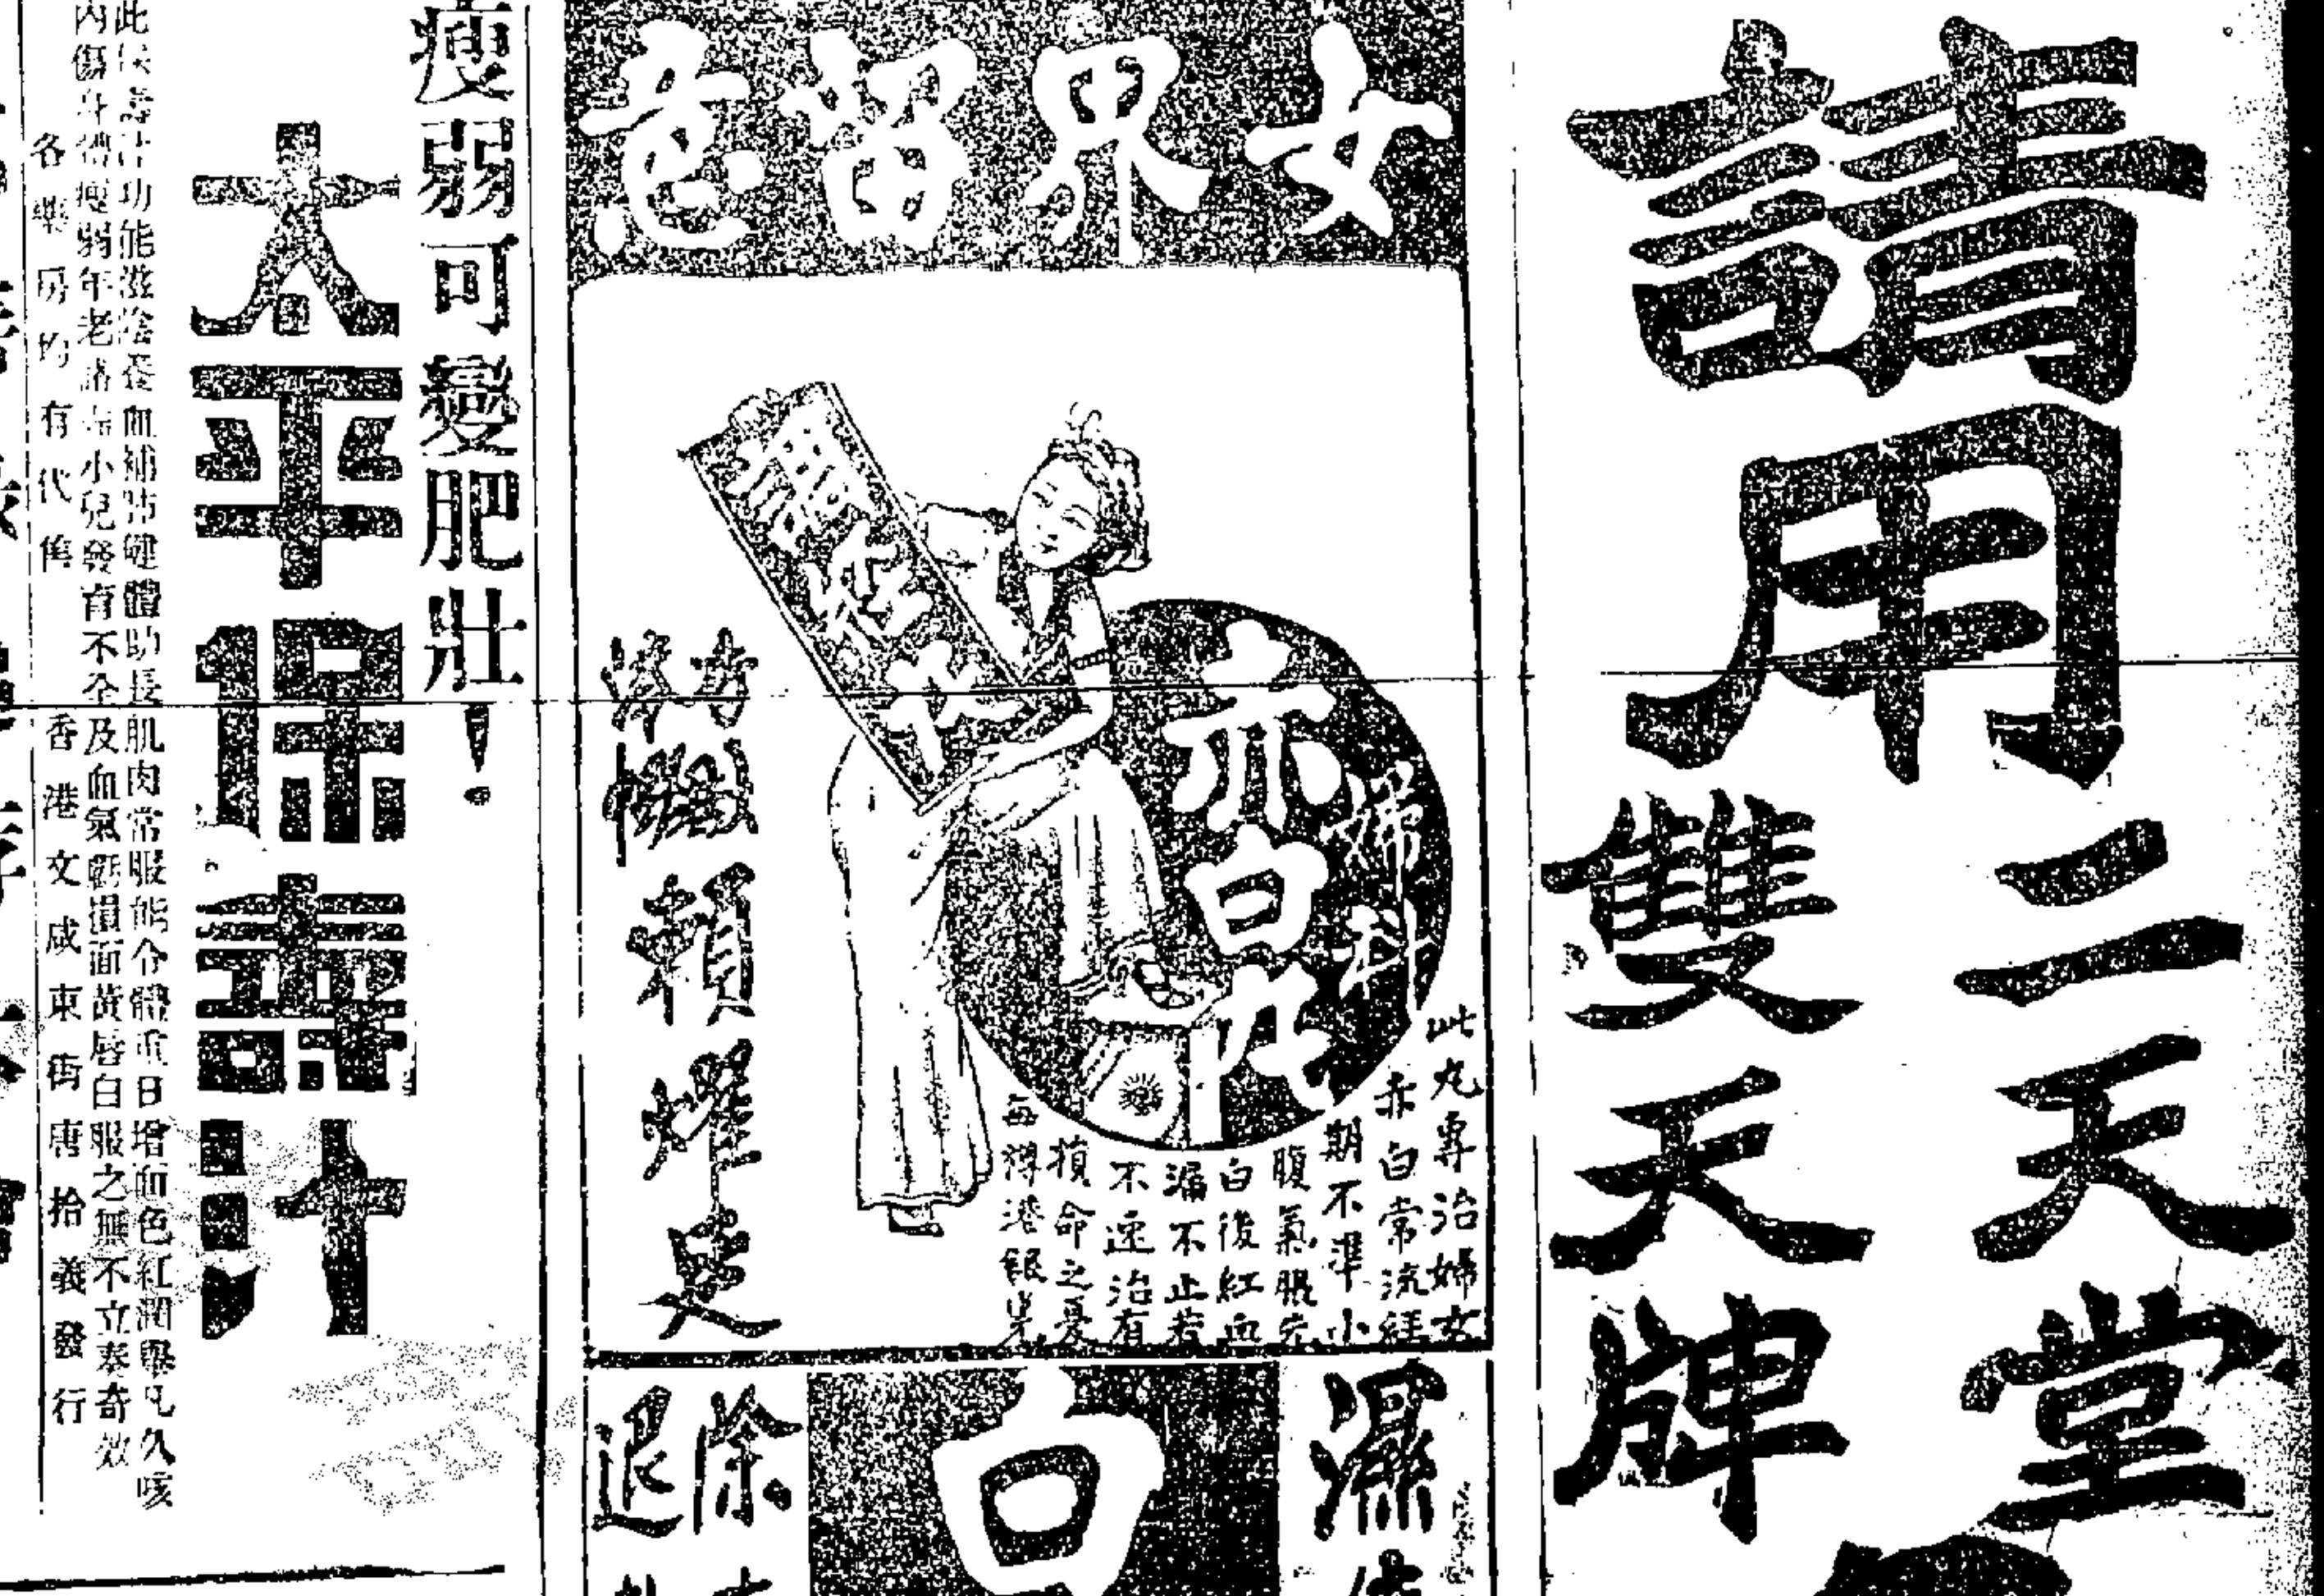 請用
二天堂
雙天牌
女界留意
婦科
赤白丸
此丸專治婦女
赤白常流經
期不準小
腹氣脹先
白後紅血
漏不止若
不速治有
損命之憂
每樽港銀
賴耀廷
濕
白
除
退
瘦弱可變肥壯！
太平保壽汁
此保壽汁功能滋陰養血補肺健體助長肌肉常服能令體重日增面色紅潤舉凡久咳
內傷身體瘦弱年老諸病小兒發育不全及血氣虧損面黃唇白服之無不立奏奇效
各藥房均有代售
香港文咸東街唐拾義發行